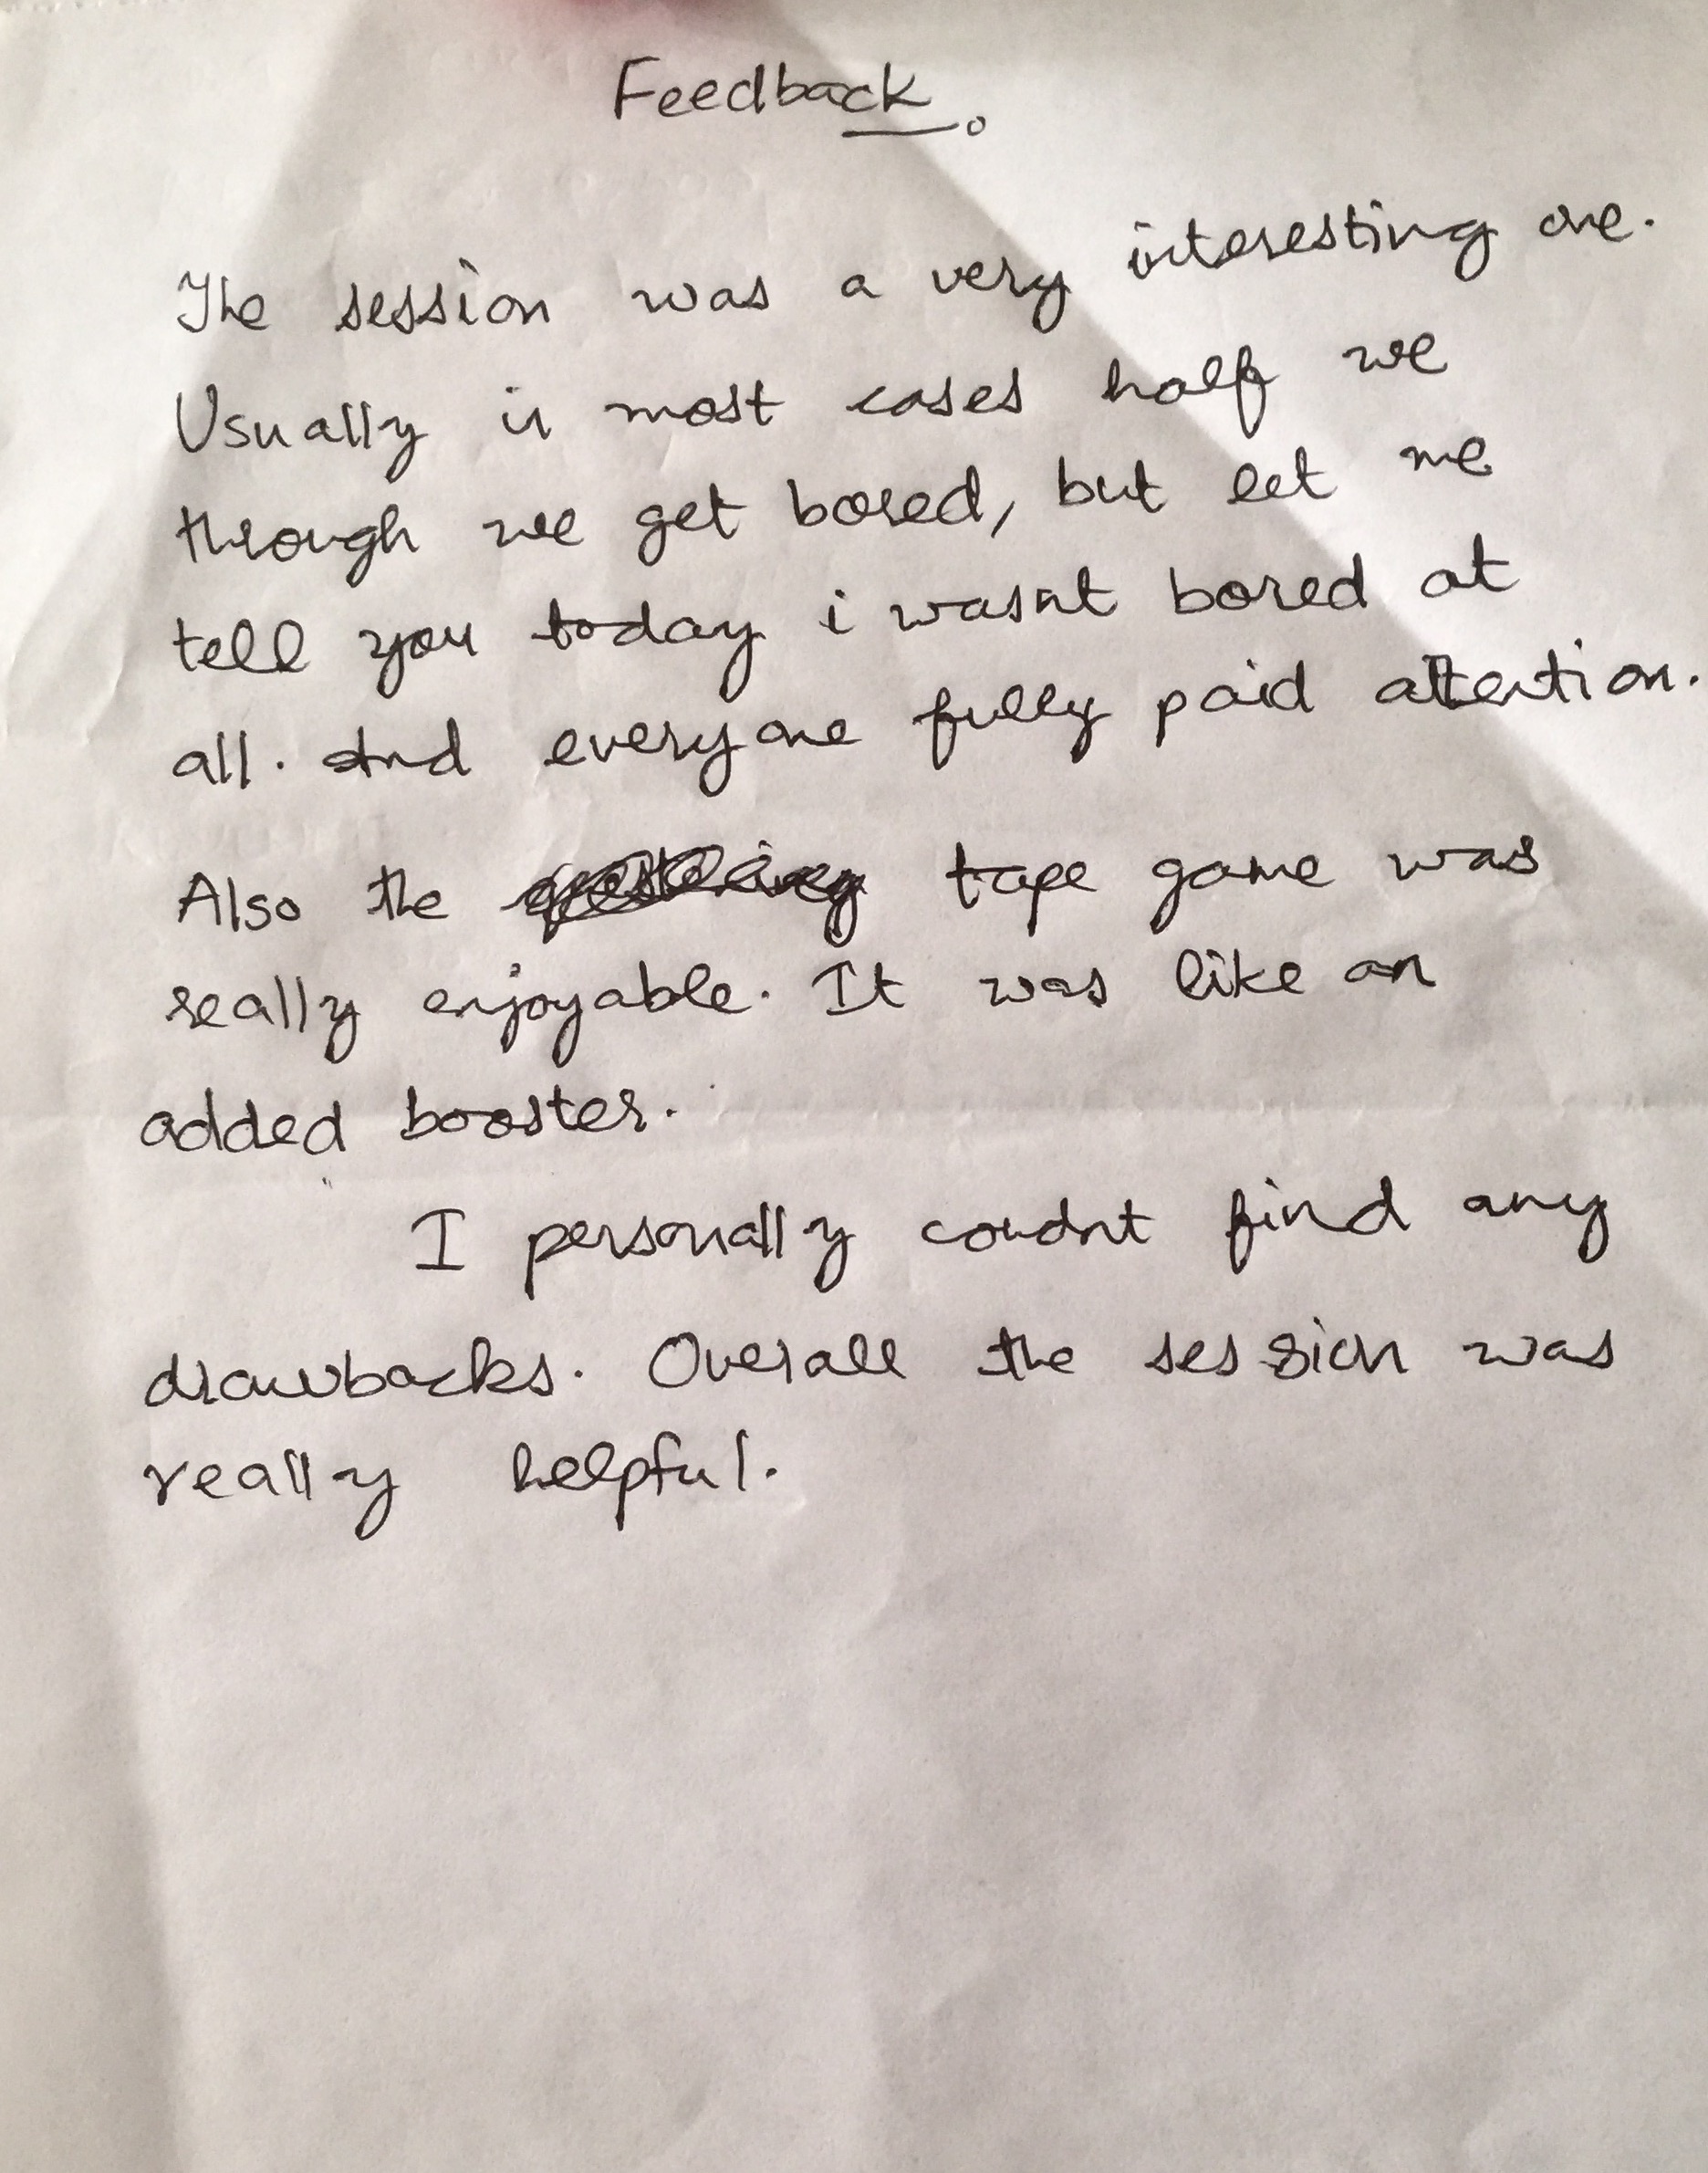 Feedback.
The session was a very interesting one.
Usually in most cases half we
through we get bored, but let me
tell you today i wasnt bored at
all. And everyone fully paid attention.
Also the tape game was
really enjoyable. It was like an
added booster.
I personally coudnt find any
drawbacks. Overall the session was
really helpful.